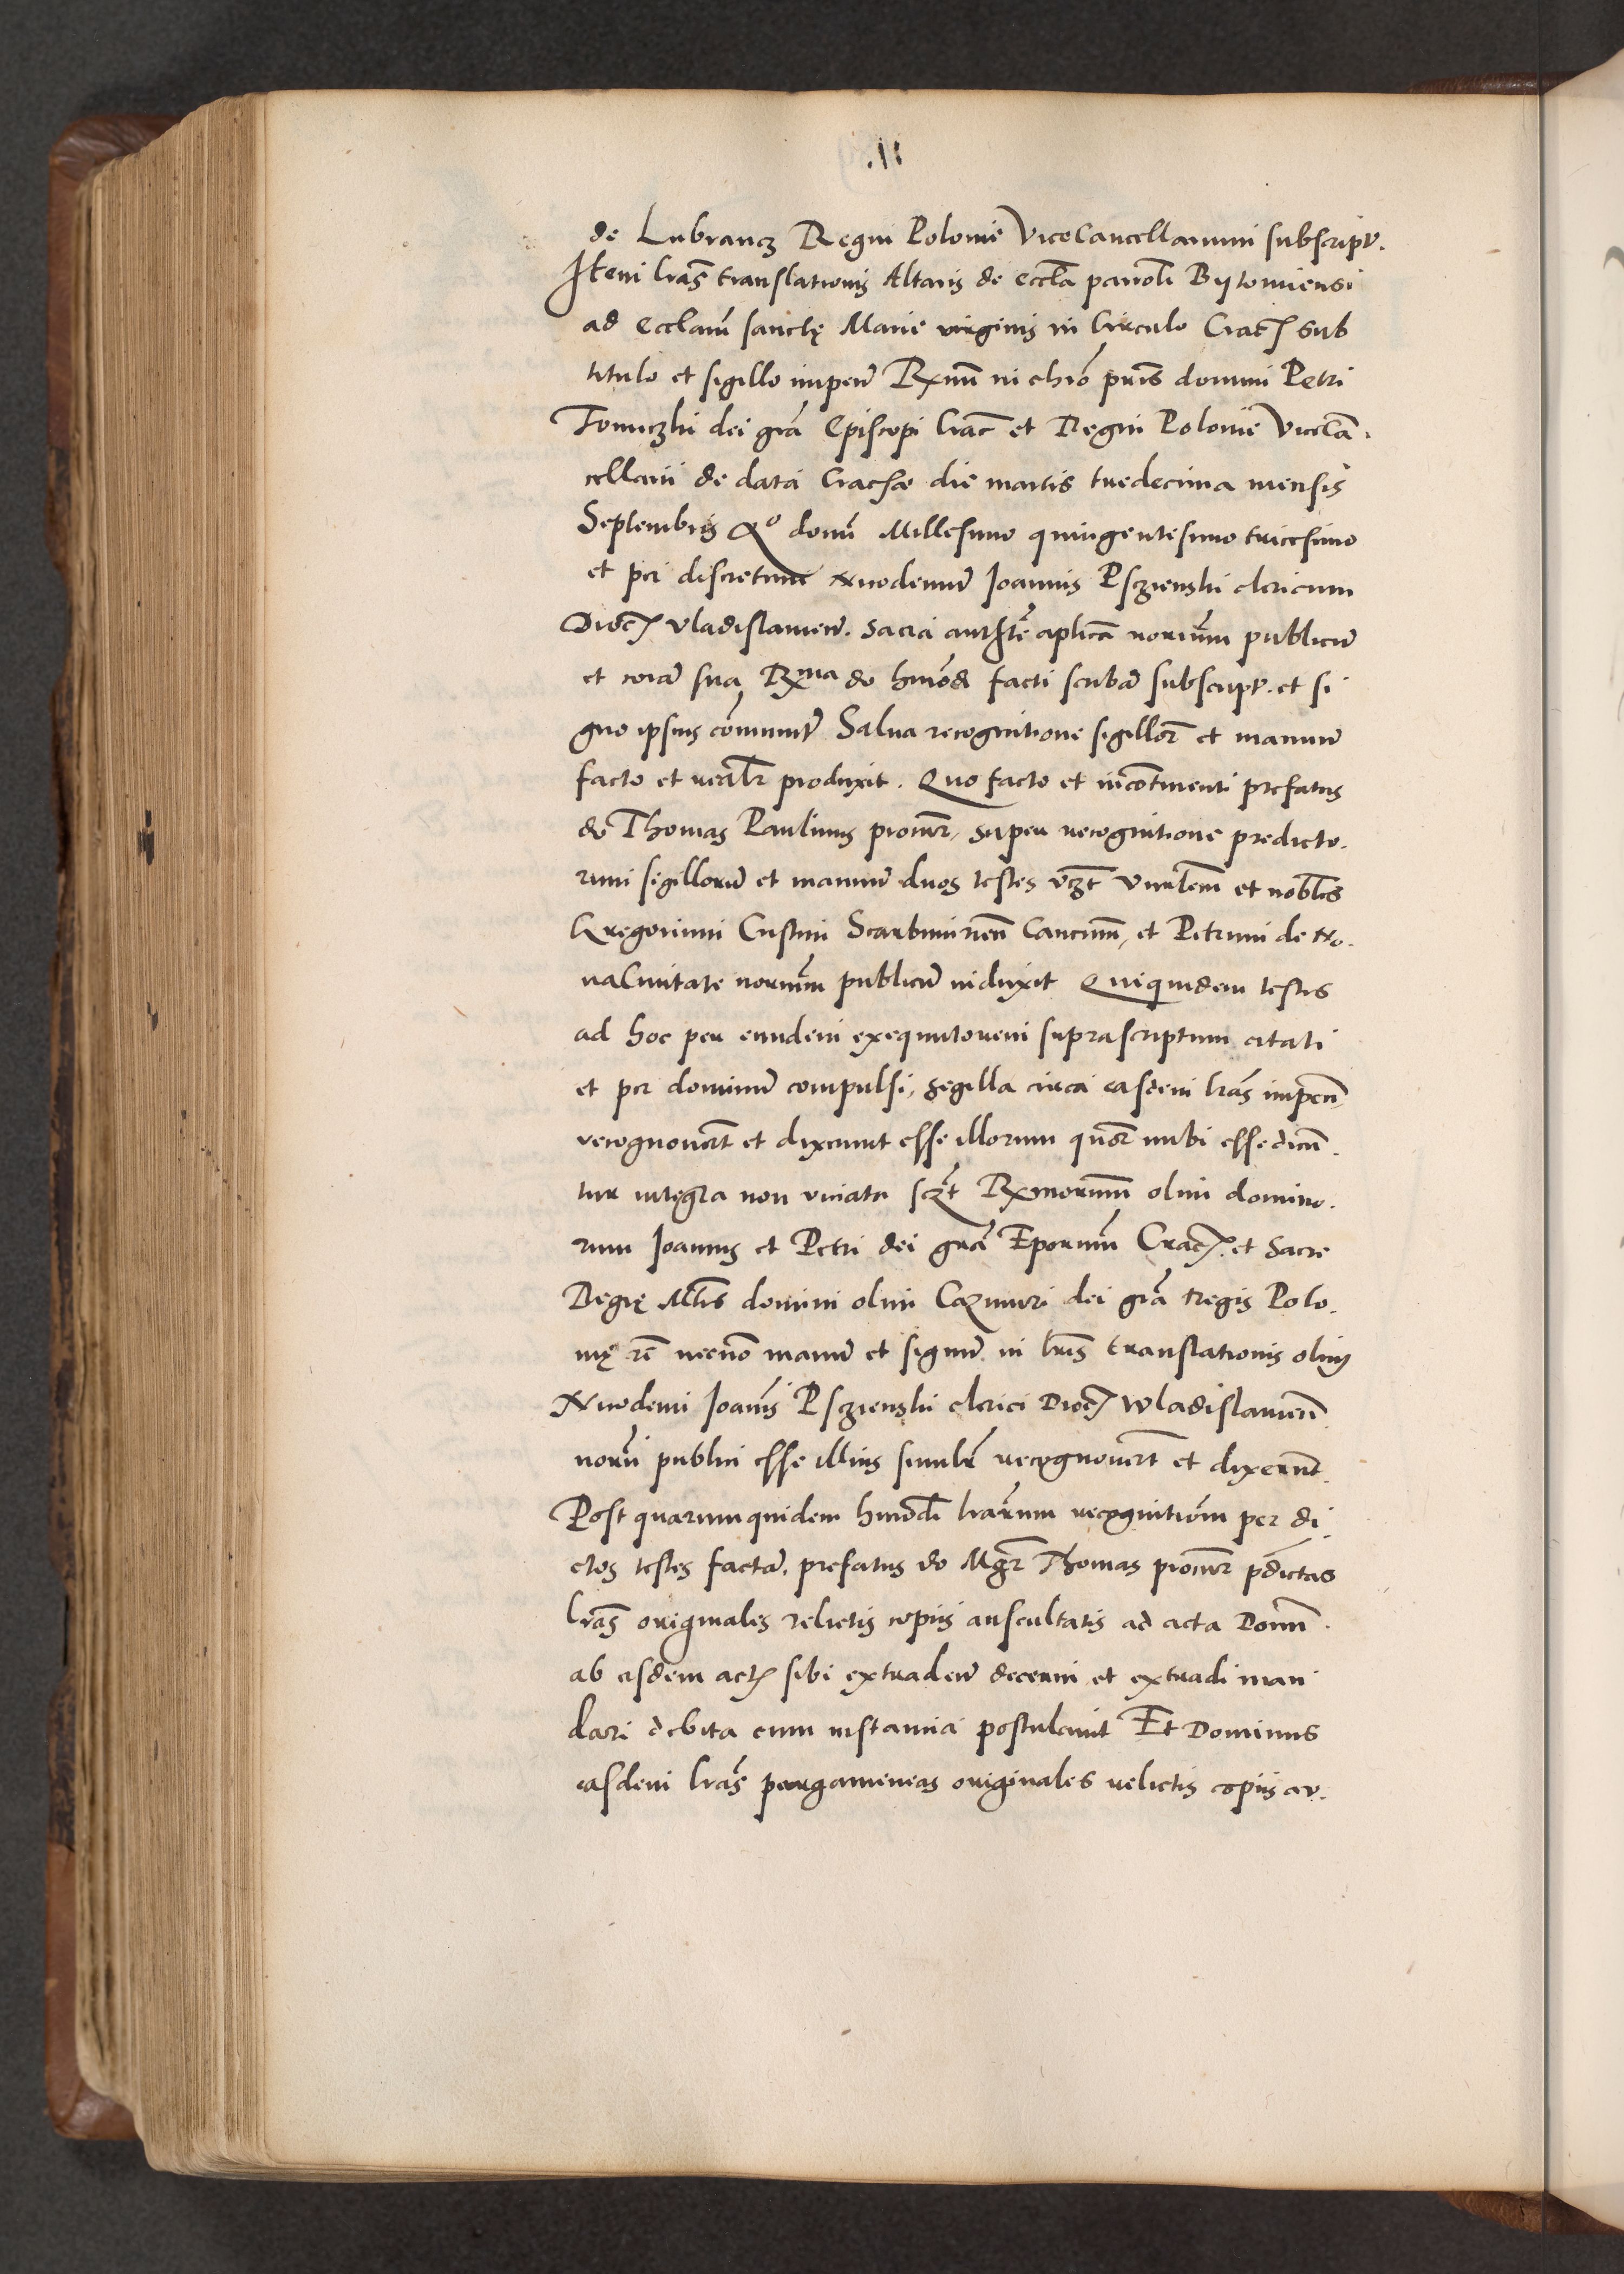 .11.
de Lubrancz Regni Polonie ViceCancellarium subscript.
Item lrãs translationis Altaris de eccła parrołi Bytomiensi
ad Ecclam̃ sanctę Marie virginis in Circulo Crac̃ sub
titulo et sigillo impeñ Rx̃mi in chrõ pr̃is domini Petri
Tomiczki dei grã Episcopi Crac̃ et Regni Polonie Vicecã-
cellarii de data Crac̃ie die martis tredecima mensis
Septembris Aº domĩ Millesimo quingentesimo tricesimo
et per discretum Nicodemum Joannis Psczienski clericum
Dioc̃ Vladislauień. Sacra autĥte aplica norium̃ publicũ
et corã sua Rxma do hmõdi facti scribã subscript. et si
gno ipsius cõmunit̃ Salua recognitione sigillor̃ et manuũ
facto et realr̃ produxit. Quo facto et incontinenti prefatus
dõ Thomas Paulinus procur̃, super recognitione predicto-
rum sigillorũ et manuũ duos testes vz̃t Vnrłem et nobłes
Gregorium Custini Scarbimireñ Canc̃um, et Petrum de No-
uaCiuitate norium̃ publicũ induxit Quiquidem testes
ad hoc per eundem exequutorem suprascriptum citati
et per dominũ compulsi, sigilla circa easdem lrãs impeñ
recognouer̃t et dixerunt esse illorum quor̃ mibi esse dicũ-
tur integra non viciata scz̃t Rxmorum̃ olim domino-
rum Joannis et Petri dei grã Eporum̃ Crac̃. et Sacre
Regię M̃tis domini olim Cazimiri dei grã Regis Polo-
nię rc̃ necnõ manũ et signũ in lrĩs translationis olim
Nicodemi Joannis Psczienski clerici Dioc̃ Wladislauień
norii publici esse illius similr̃ recognouer̃t et dixerunt.
Post quarumquidem hmõdi lrãrum recognitiõm per di-
ctos testes factã, prefatus do Mgr̃ Thomas procur̃ pdictas
lrãs originales relictis copiis auscultatis ad acta Domĩ
ab eisdem actis sibi extradeñ decerni et extradi man
dari debita cum instantia postulauit Et Dominus
easdem lrãs pergameneas originales relictis copiis au-